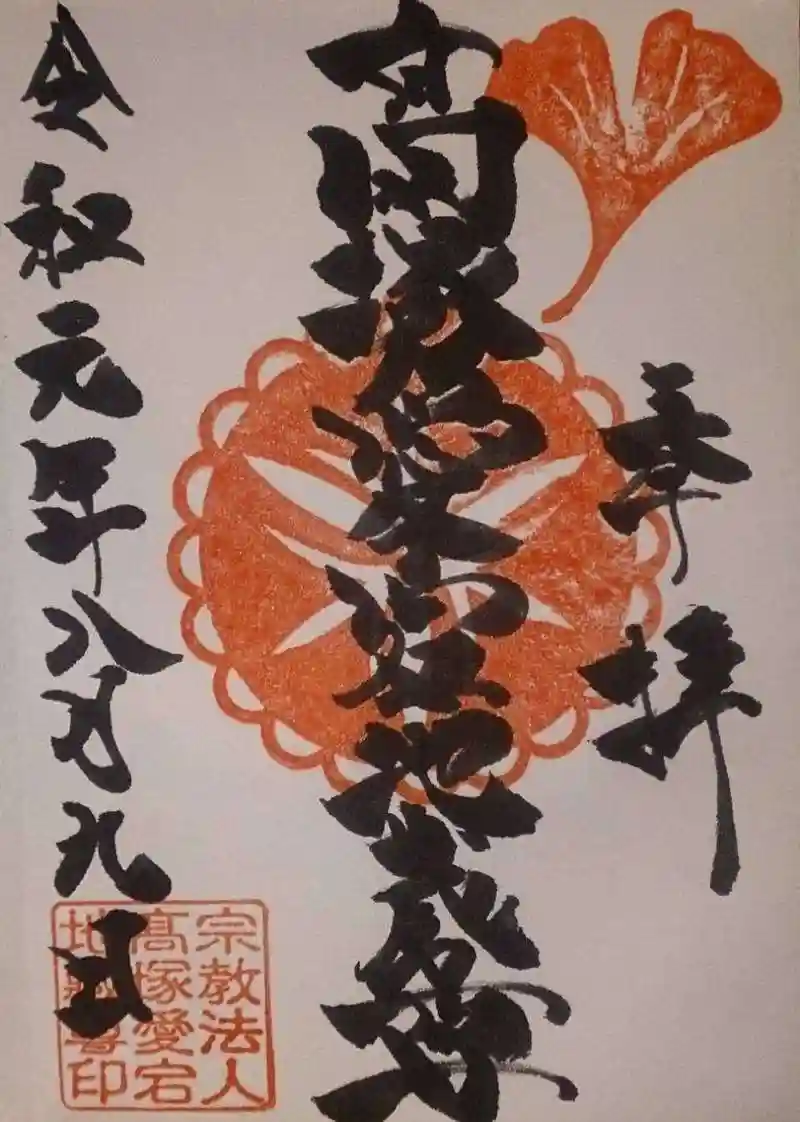 奉拝
高塚愛宕地蔵尊
令和元年八月九日
宗教法人
髙塚愛宕
地蔵尊印